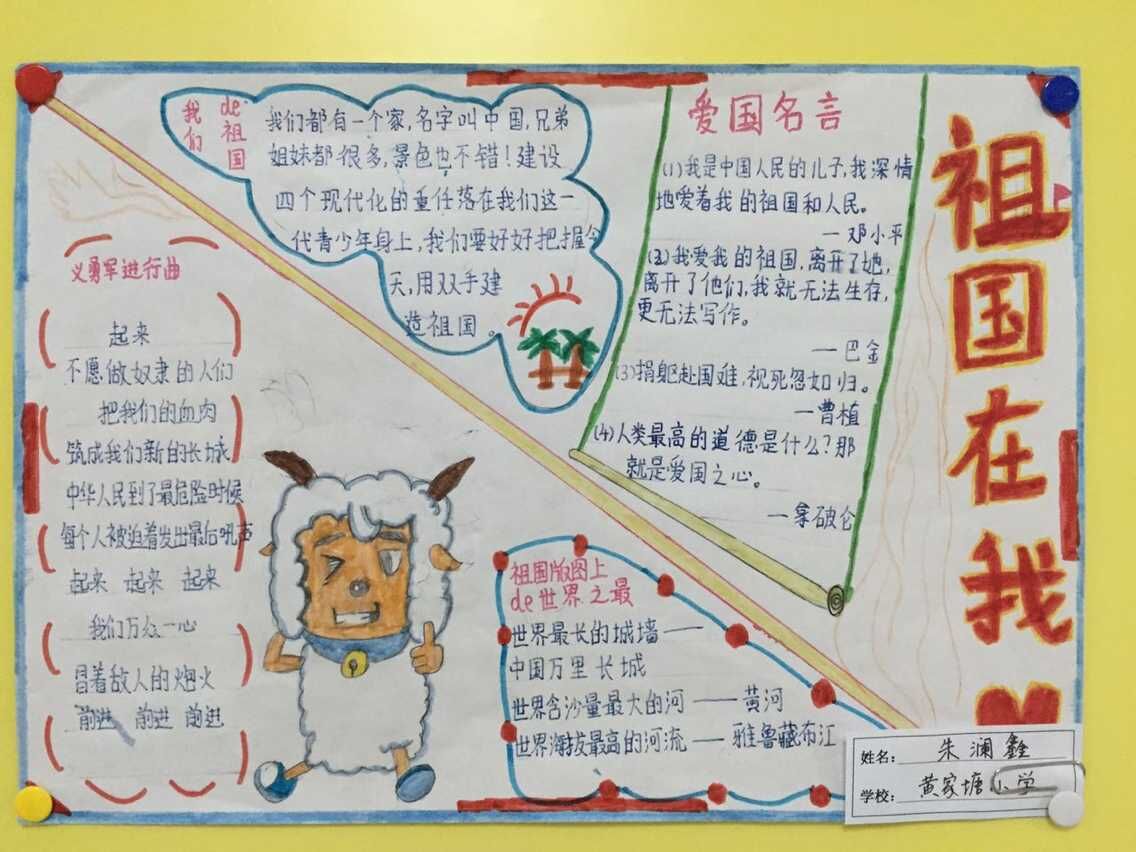 祖国在我
我们
de祖国
我们都有一个家,名字叫中国,兄弟
姐妹都很多,景色也不错!建设
四个现代化的重任落在我们这一
代青少年身上,我们要好好把握今
天,用双手建
造祖国。
爱国名言
(1)我是中国人民的儿子,我深情
地爱着我的祖国和人民。
一邓小平
(2)我爱我的祖国,离开了她,
离开了他们,我就无法生存,
更无法写作。
一巴金
(3)捐躯赴国难,视死忽如归。
一曹植
(4)人类最高的道德是什么?那
就是爱国之心。
一拿破仑
义勇军进行曲
起来
不愿做奴隶的人们
把我们的血肉
筑成我们新的长城
中华人民到了最危险时候
每个人被迫着发出最后吼声
起来 起来 起来
我们万众一心
冒着敌人的炮火
前进 前进 前进
祖国版图上
de世界之最
世界最长的城墙——
中国万里长城
世界含沙量最大的河——黄河
世界海拔最高的河流——雅鲁藏布江
姓名:朱澜鑫
学校:黄家塘小学